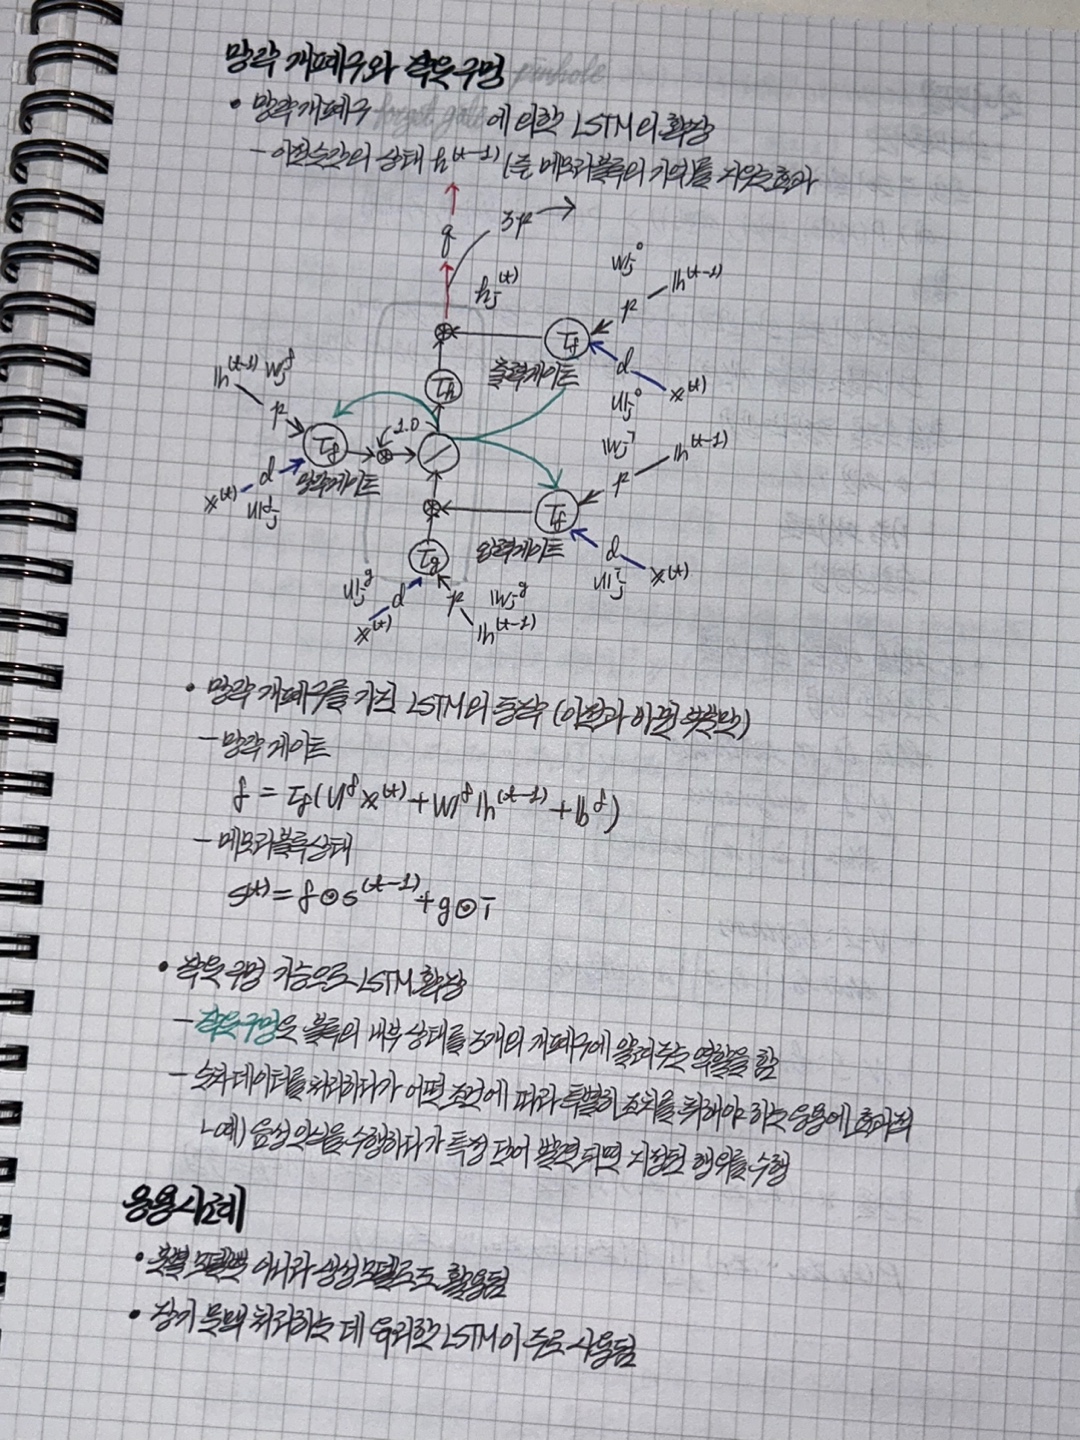 망각 개폐구와 작은 구멍 pinhole
• 망각 개폐구 forget gate에 의한 LSTM의 확장
- 이전 순간의 상태 h^(t-1) (즉 메모리 블록의 기억)를 지우는 효과
q
3p
h_j^(t)
w_j^o
h^(t-1)
p
τ_f
출력 게이트
d
x^(t)
u_j^o
τ_h
h^(t-1) w_j^f
p
τ_f
1.0
망각 게이트
d
x^(t)
u_j^f
w_j^i
h^(t-1)
p
τ_f
입력 게이트
d
u_j^i
x^(t)
τ_g
u_j^g
d
x^(t)
p
w_j^g
h^(t-1)
• 망각 개폐구를 가진 LSTM의 동작 (이전과 바뀐 부분만)
- 망각 게이트
f = τ_f(U^f x^(t) + W^f h^(t-1) + b^f)
- 메모리 블록 상태
s^(t) = f ⊙ s^(t-1) + g ⊙ i
• 작은 구멍 기능으로 LSTM 확장
- 작은 구멍은 블록의 내부 상태를 3개의 개폐구에 알려주는 역할을 함
- 순차 데이터를 처리하다가 어떤 조건에 따라 특별히 조치를 취해야 하는 응용에 효과적
ㄴ예) 음성 인식을 수행하다가 특정 단어 발견되면 지정된 행위를 수행
응용사례
• 분별 모델뿐 아니라 생성 모델로도 활용됨
• 장기 문맥 처리하는 데 유리한 LSTM이 주로 사용됨